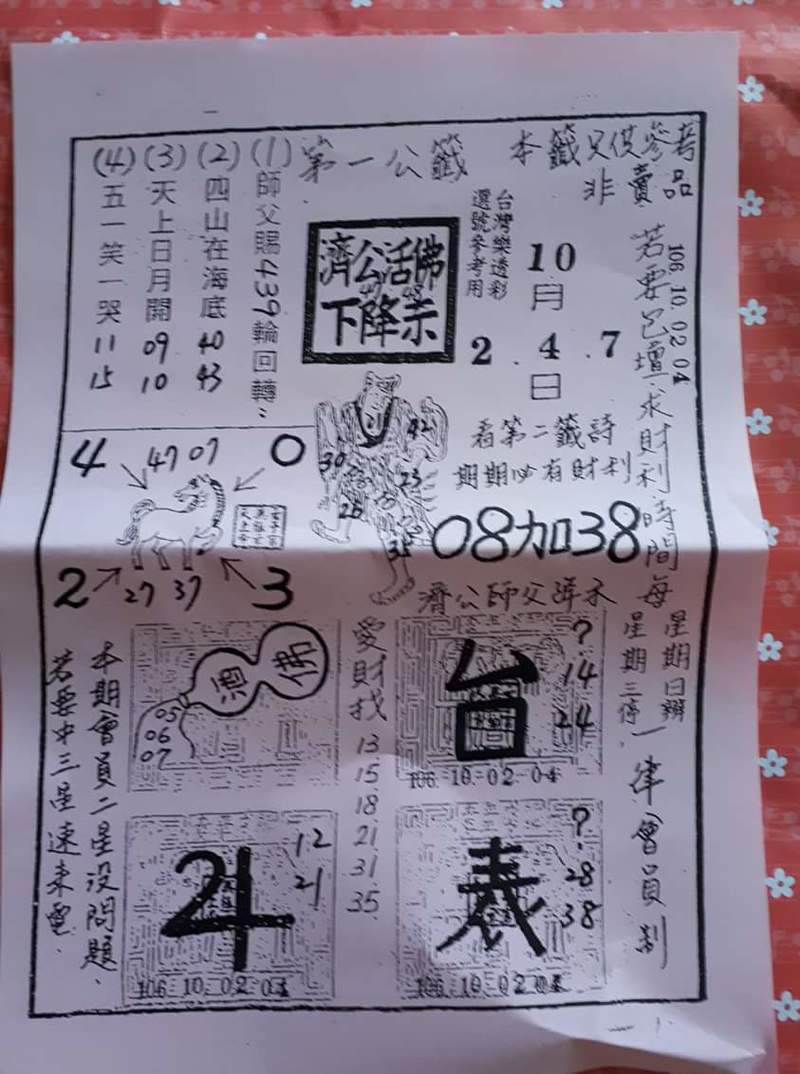 本籤只供參考
非賣品
第一公籤
(1) 師父賜439輪回轉
(2) 四山在海底 40 43
(3) 天上日月開 09 10
(4) 五一笑一哭 11 15
濟公活佛
下降示
台灣樂透彩
選號參考用
10月
2.4.7日
106.10.02.04
若要包壇求財利時間每
星期日辦
星期三停
一律會員制
看第二籤詩
期期必有財利
08加38
4 47 07 0
2 27 37 3
30
42
23
26
38
濟公師父降示
佛
酒
05
06
07
愛財找
13
15
18
21
31
35
台
?
14
24
106.10.02.04
斗
12
21
106.10.02.04
表
?
28
38
106.10.02.04
本期會員二星沒問題
若要中三星速來電